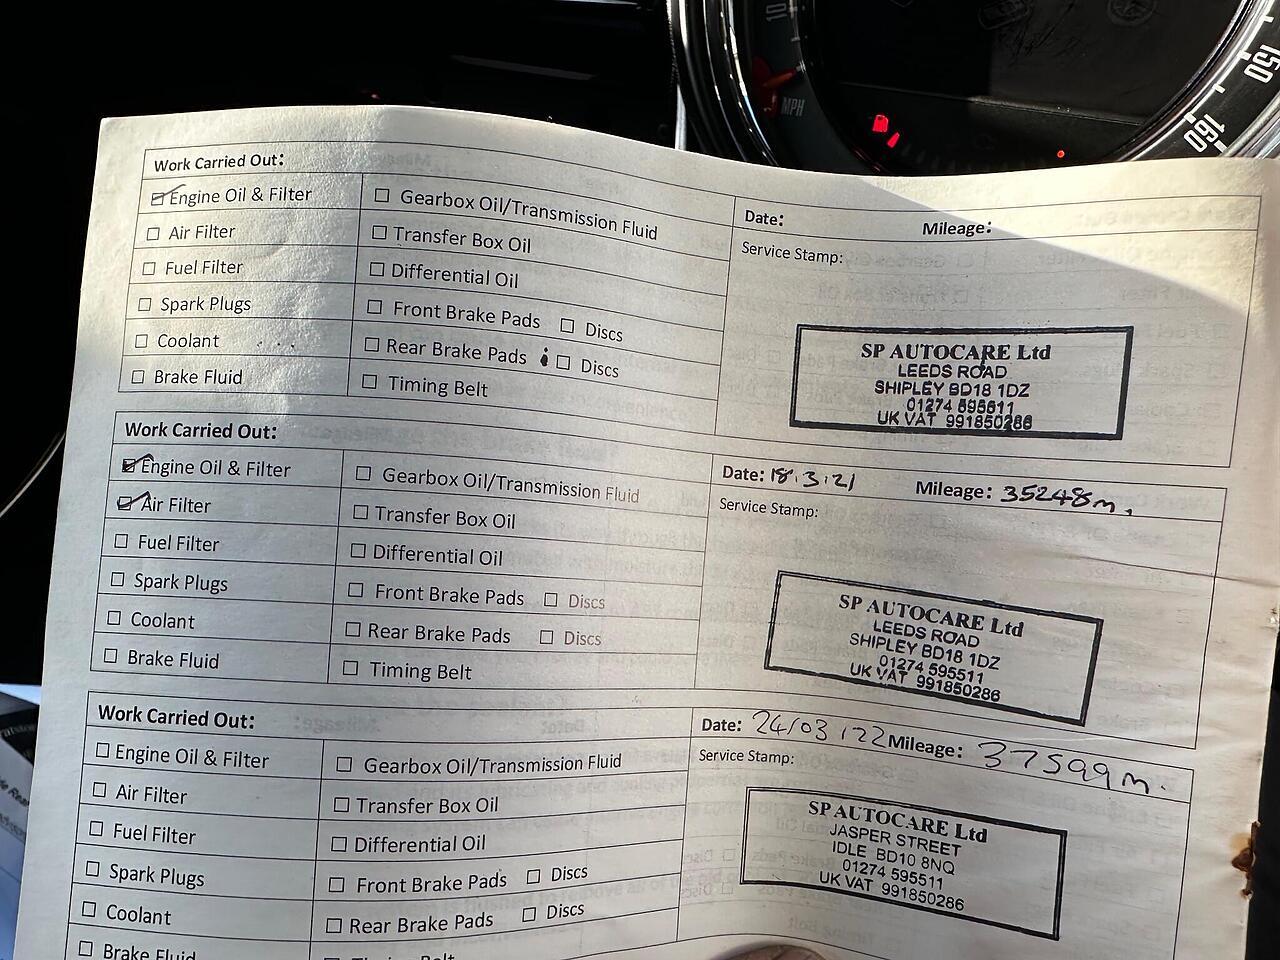 MPH
150
160
Work Carried Out:
Engine Oil & Filter
Gearbox Oil/Transmission Fluid
Date: Mileage:
Air Filter
Transfer Box Oil
Service Stamp:
Fuel Filter
Differential Oil
Spark Plugs
Front Brake Pads Discs
Coolant
Rear Brake Pads Discs
Brake Fluid
Timing Belt
SP AUTOCARE Ltd
LEEDS ROAD
SHIPLEY BD18 1DZ
01274 595511
UK VAT 991850286
Work Carried Out:
Engine Oil & Filter
Gearbox Oil/Transmission Fluid
Date: 18.3.21 Mileage: 35248m.
Air Filter
Transfer Box Oil
Service Stamp:
Fuel Filter
Differential Oil
Spark Plugs
Front Brake Pads Discs
Coolant
Rear Brake Pads Discs
Brake Fluid
Timing Belt
SP AUTOCARE Ltd
LEEDS ROAD
SHIPLEY BD18 1DZ
01274 595511
UK VAT 991850286
Work Carried Out:
Engine Oil & Filter
Gearbox Oil/Transmission Fluid
Date: 24/03/22 Mileage: 37599m.
Air Filter
Transfer Box Oil
Service Stamp:
Fuel Filter
Differential Oil
Spark Plugs
Front Brake Pads Discs
Coolant
Rear Brake Pads Discs
Brake Fluid
Timing Belt
SP AUTOCARE Ltd
JASPER STREET
IDLE BD10 8NQ
01274 595511
UK VAT 991850286